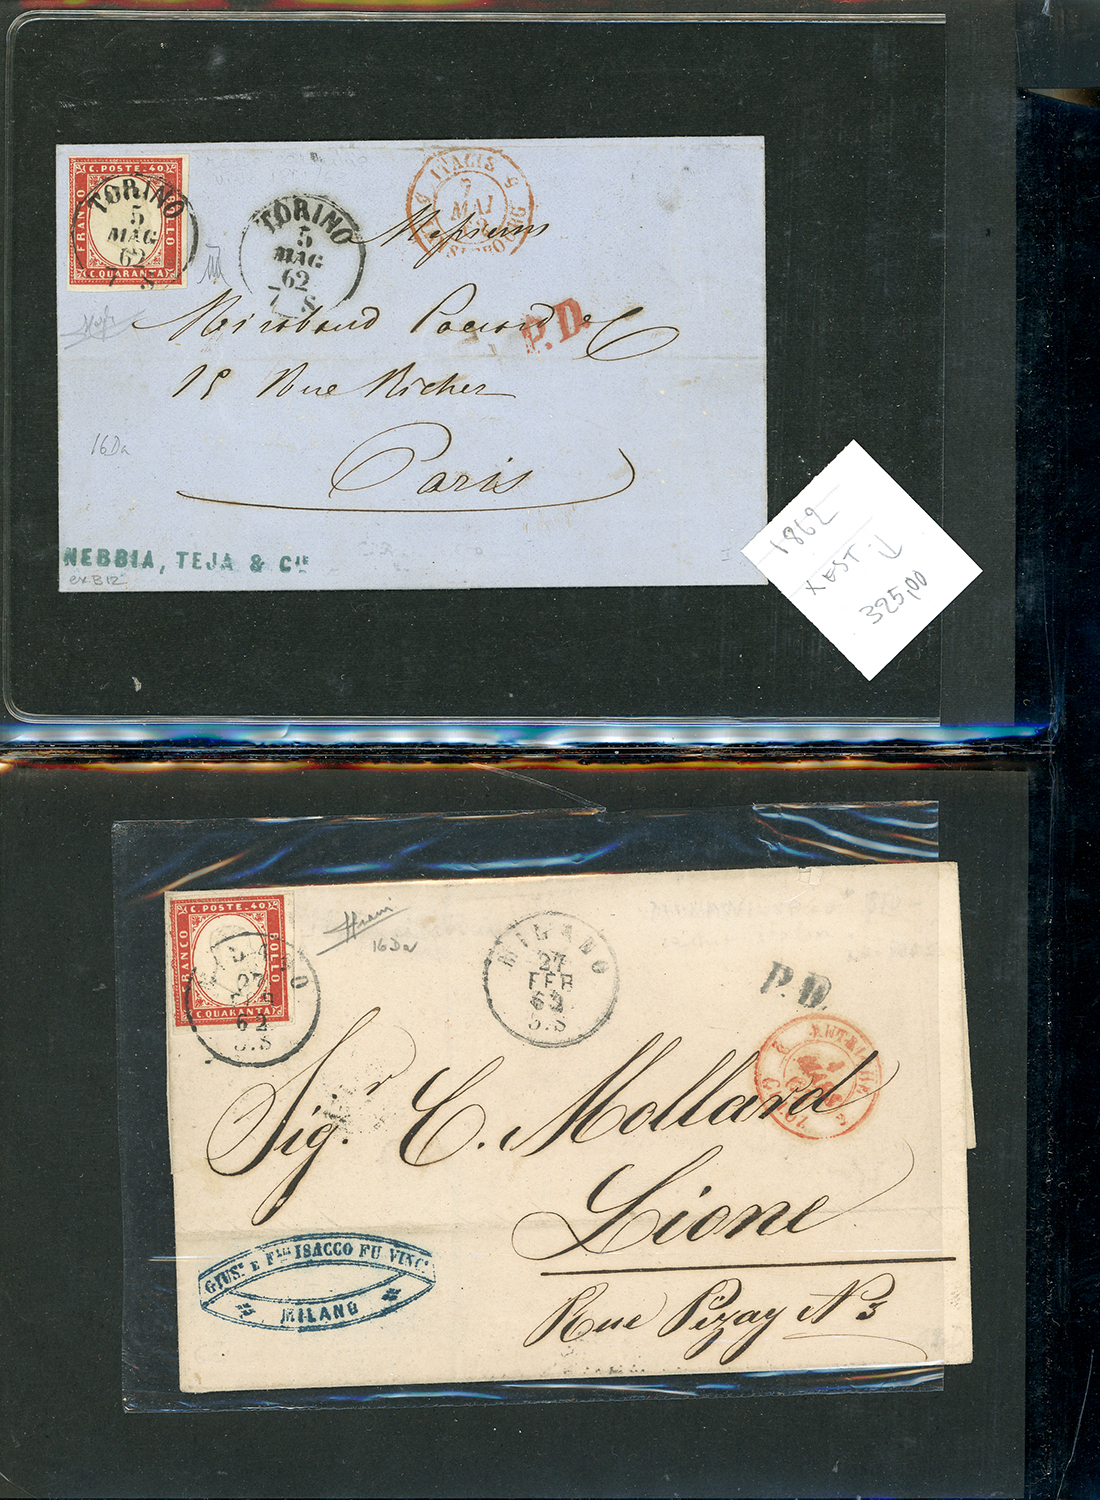 C. POSTE. 40
FRANCO
BOLLO
C. QUARANTA
TORINO
5
MAG
62
7 S
TORINO
5
MAG
62
7 S
5 ITALIE 5
7
MAI
62
P.D.
Messieurs
Mirabaud Paccard & C
15 Rue Richer
Paris
16Da
NEBBIA, TEJA & CIE
ex B12
1862
X EST.
325,00
C. POSTE. 40
FRANCO
BOLLO
C. QUARANTA
27
62
3.S
16Da
MILANO
27
FEB
62
3.S
P.D.
Sig.r C. Mollard
Lione
Rue Pizay N 3
GIUS.e E F.lli ISACCO FU VINC.o
MILANO